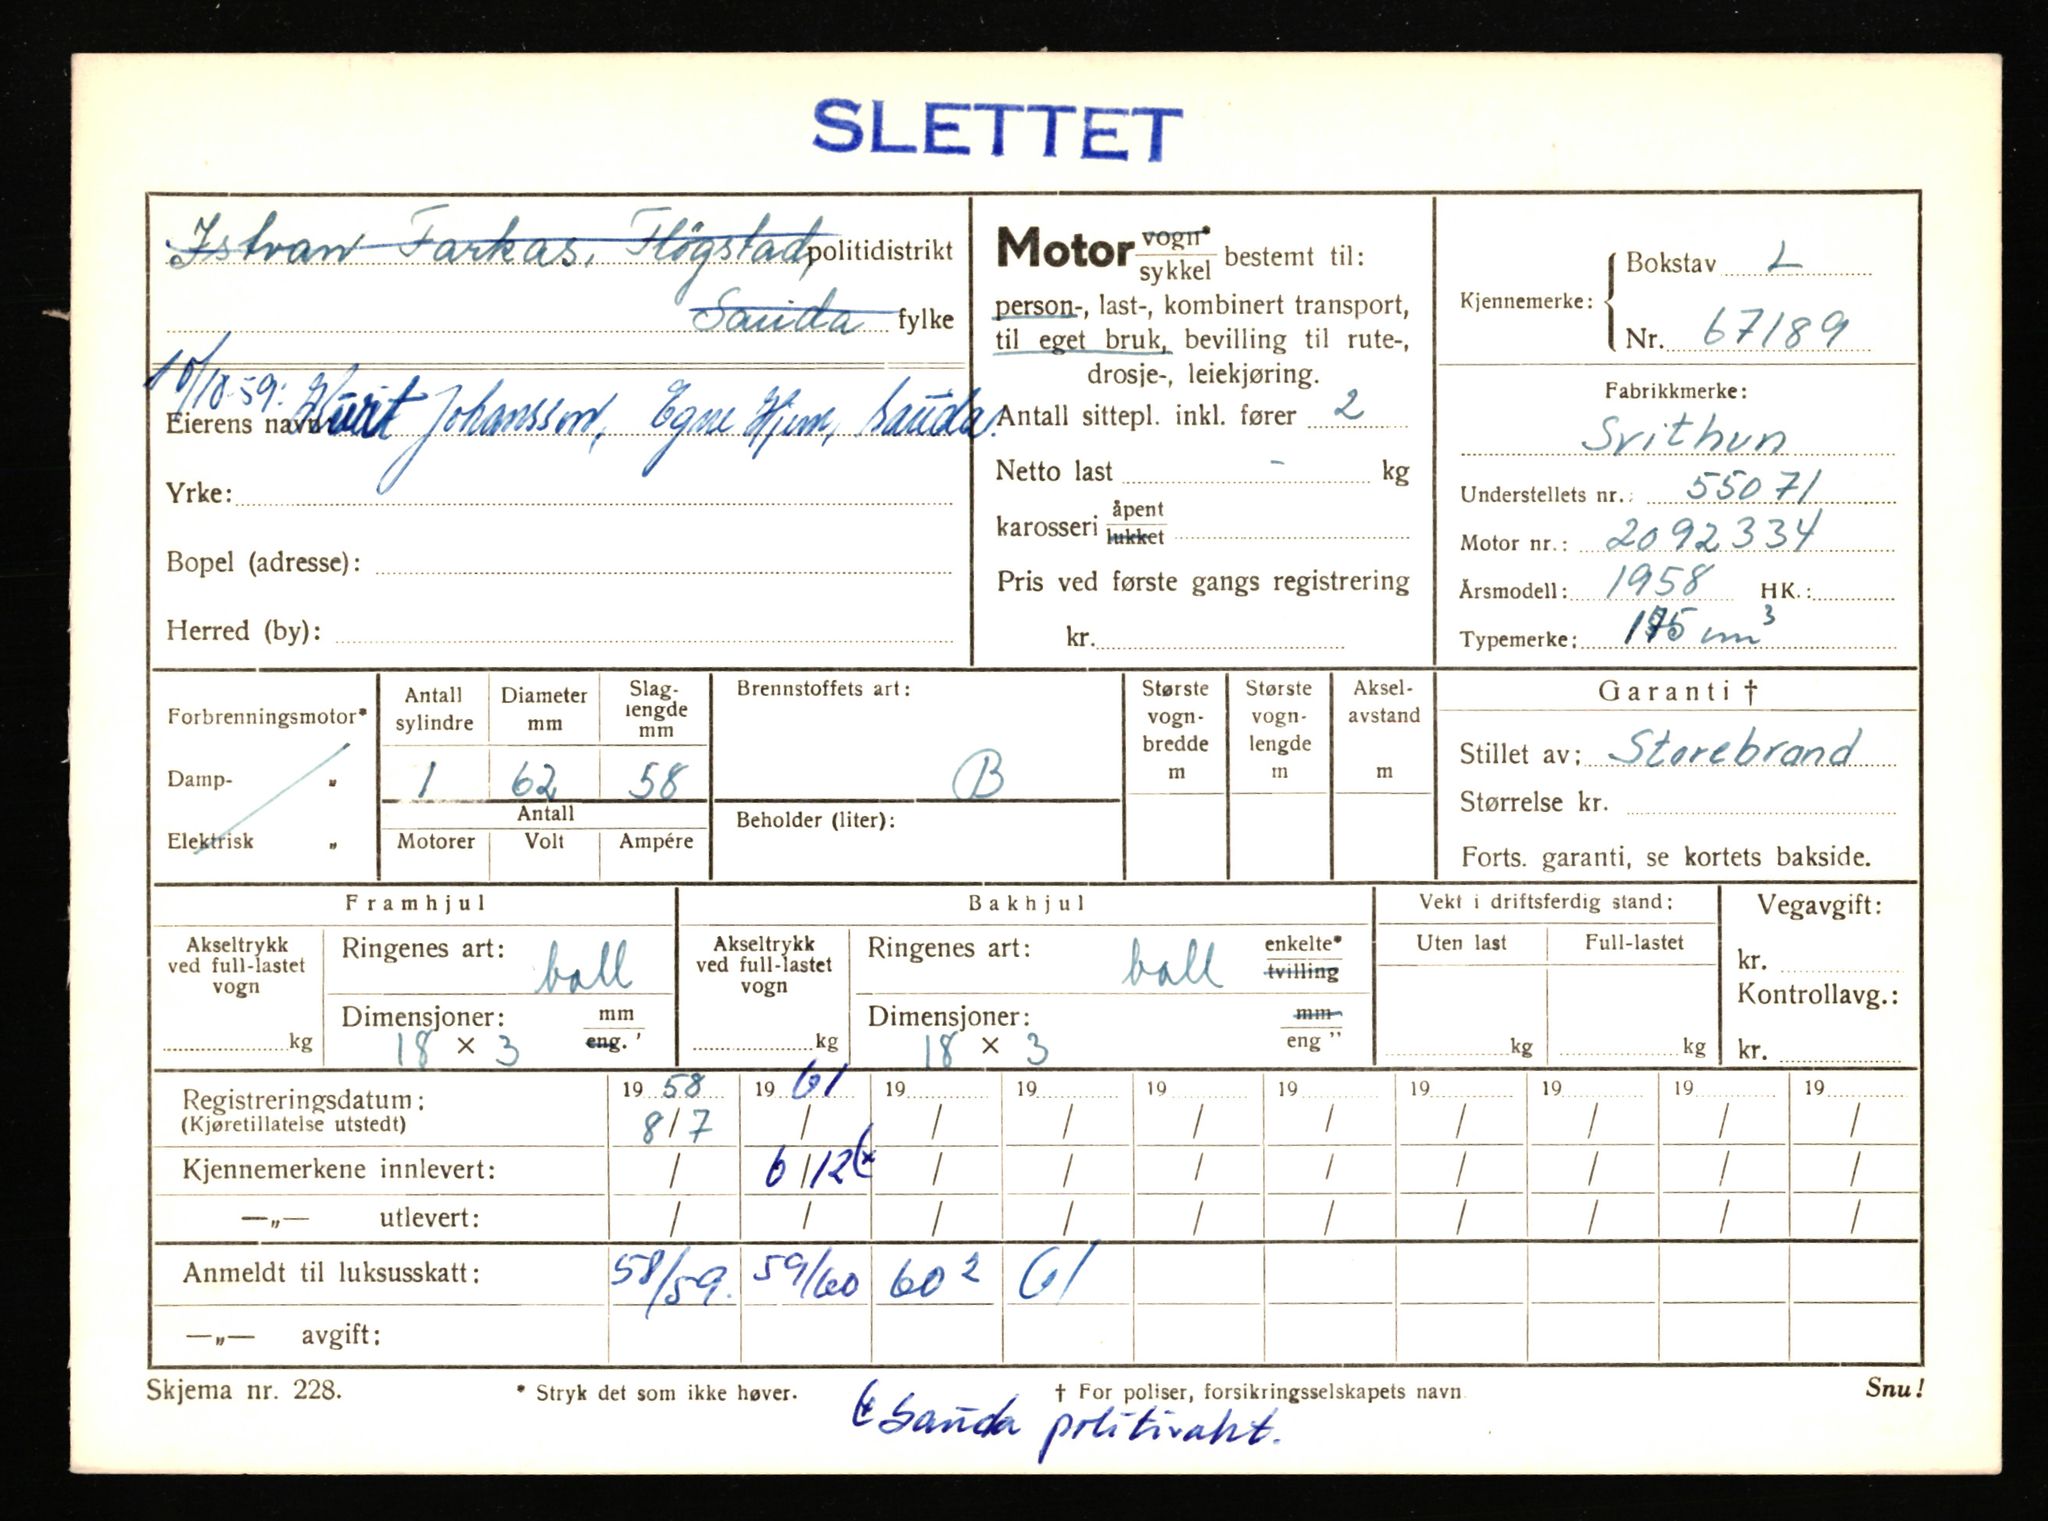 SLETTET
Istvan Farkas, Fløgstad, politidistrikt
Sauda fylke
10/10-59:
Eierens navn Johansson, Egne Hjem, Sauda.
Yrke:
Bopel (adresse):
Herred (by):
Motor vogn* sykkel bestemt til:
person-, last-, kombinert transport,
til eget bruk, bevilling til rute-,
drosje-, leiekjøring.
Antall sittepl. inkl. fører 2
Netto last - kg
karosseri åpent lukket
Pris ved første gangs registrering
kr.
Kjennemerke: Bokstav L
Nr. 67189
Fabrikkmerke:
Svithun
Understellets nr.: 55071
Motor nr.: 2092334
Årsmodell: 1958 HK.:
Typemerke: 175 cm³
Forbrenningsmotor*
Damp- „
Elektrisk „
Antall sylindre
Diameter mm
Slag-lengde mm
1 62 58
Antall
Motorer Volt Ampére
Brennstoffets art:
B
Beholder (liter):
Største vogn-bredde m
Største vogn-lengde m
Aksel-avstand m
Garanti †
Stillet av: Storebrand
Størrelse kr.
Forts. garanti, se kortets bakside.
Framhjul
Akseltrykk ved full-lastet vogn
kg
Ringenes art: ball
Dimensjoner: mm eng. '
18 × 3
Bakhjul
Akseltrykk ved full-lastet vogn
kg
Ringenes art: ball enkelte* tvilling
Dimensjoner: mm eng "
18 × 3
Vekt i driftsferdig stand:
Uten last Full-lastet
kg kg
Vegavgift:
kr.
Kontrollavg.:
kr.
Registreringsdatum: 19 58 19 61 19 19 19 19 19 19 19 19
(Kjøretillatelse utstedt) 8/7 / / / / / / / / /
Kjennemerkene innlevert: / 6/12 (x / / / / / / / /
—„— utlevert: / / / / / / / / / /
Anmeldt til luksusskatt: 58/59. 59/60 60² 61
—„— avgift:
Skjema nr. 228. * Stryk det som ikke høver. † For poliser, forsikringsselskapets navn Snu!
(x Sauda politivakt.